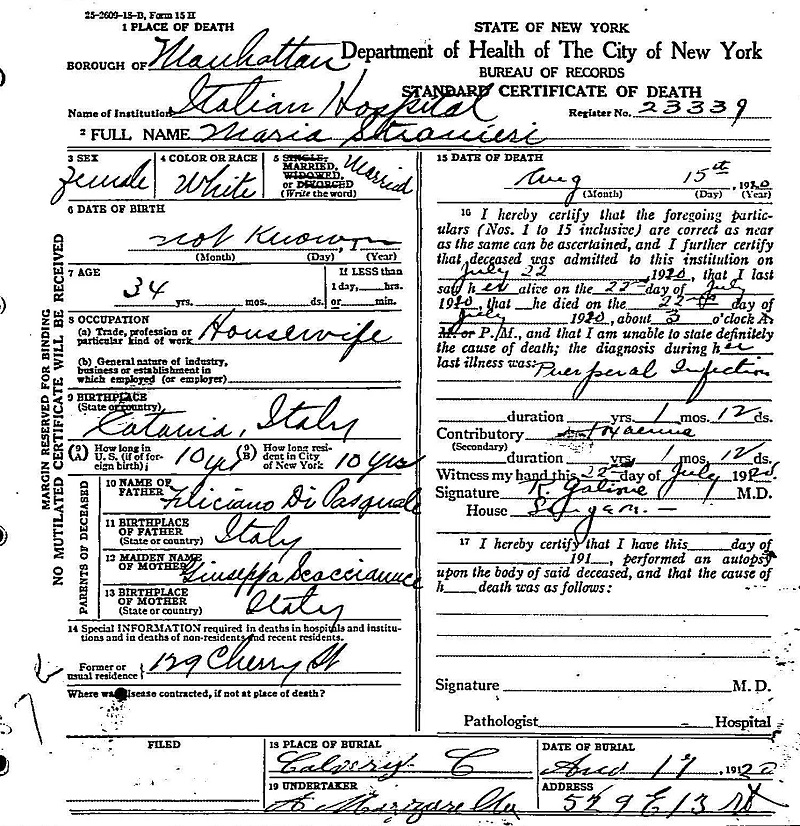 25-2609-18-B, Form 15 H
1 PLACE OF DEATH
BOROUGH OF Manhattan
STATE OF NEW YORK
Department of Health of The City of New York
BUREAU OF RECORDS
STANDARD CERTIFICATE OF DEATH
Name of Institution Italian Hospital
Register No. 23339
2 FULL NAME Maria Stranieri
MARGIN RESERVED FOR BINDING
NO MUTILATED CERTIFICATE WILL BE RECEIVED
3 SEX
Female
4 COLOR OR RACE
White
5 SINGLE,
MARRIED,
WIDOWED,
or DIVORCED
(Write the word)
Married
6 DATE OF BIRTH
not Known
(Month) (Day) (Year)
7 AGE
34 yrs. mos. ds.
If LESS than
1 day, hrs.
or min.
8 OCCUPATION
(a) Trade, profession or
particular kind of work Housewife
(b) General nature of industry,
business or establishment in
which employed (or employer)
9 BIRTHPLACE
(State or country)
Catania, Italy
(9A) How long in
U. S. (if of for-
eign birth) 10 yrs
(9B) How long resi-
dent in City
of New York 10 yrs
PARENTS OF DECEASED
10 NAME OF
FATHER Feliciano Di Pasquale
11 BIRTHPLACE
OF FATHER
(State or country) Italy
12 MAIDEN NAME
OF MOTHER Giuseppa
13 BIRTHPLACE
OF MOTHER
(State or country) Italy
14 Special INFORMATION required in deaths in hospitals and institu-
tions and in deaths of non-residents and recent residents.
Former or
usual residence 129 Cherry St
Where was disease contracted, if not at place of death?
15 DATE OF DEATH
Aug 15th, 1920
(Month) (Day) (Year)
16 I hereby certify that the foregoing partic-
ulars (Nos. 1 to 15 inclusive) are correct as near
as the same can be ascertained, and I further certify
that deceased was admitted to this institution on
July 22, 1920, that I last
saw her alive on the 22 day of July
1920, that he died on the 22 day of
July 1920, about 3 o'clock A.
M. or P. M., and that I am unable to state definitely
the cause of death; the diagnosis during her
last illness was: Puerperal Infection
duration yrs. 1 mos. 12 ds.
Contributory Toxaemia
(Secondary)
duration yrs. 1 mos. 12 ds.
Witness my hand this 22 day of July 1920
Signature M.D.
House Surgeon
17 I hereby certify that I have this day of
191 , performed an autopsy
upon the body of said deceased, and that the cause of
h death was as follows:
Signature M. D.
Pathologist Hospital
FILED
18 PLACE OF BURIAL
Calvary C
DATE OF BURIAL
Aug 17, 1920
19 UNDERTAKER
ADDRESS
529 E 13 St